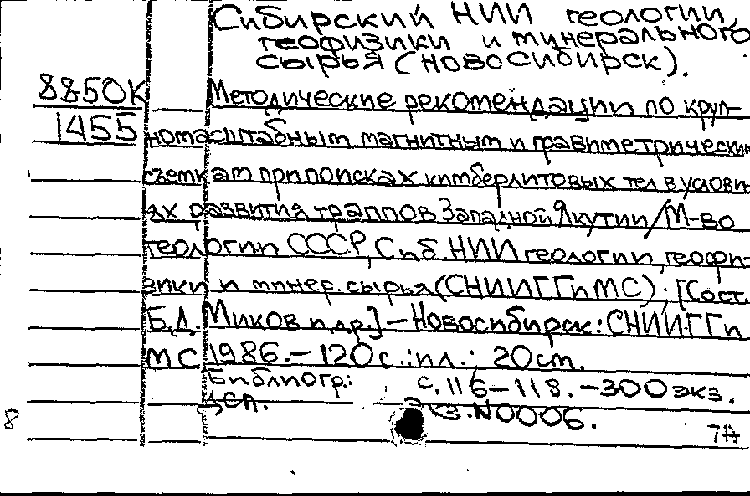 Сибирский НИИ геологии,
геофизики и минерального
сырья (Новосибирск).
8850К Методические рекомендации по круп-
1455 номасштабным магнитным и гравиметрическим
съемкам при поисках кимберлитовых тел в услови-
ях развития траппов Западной Якутии/М-во
геологии СССР, Сиб НИИ геологии, геофи-
зики и минер. сырья (СНИИГГиМС); [Сост.
Б.Д. Миков и др.] - Новосибирск: СНИИГГи
МС 1986. - 120 с.: ил.; 20 см.
Библиогр: с. 116-118. - 300 экз.
ДСП. Экз. N0006.
8